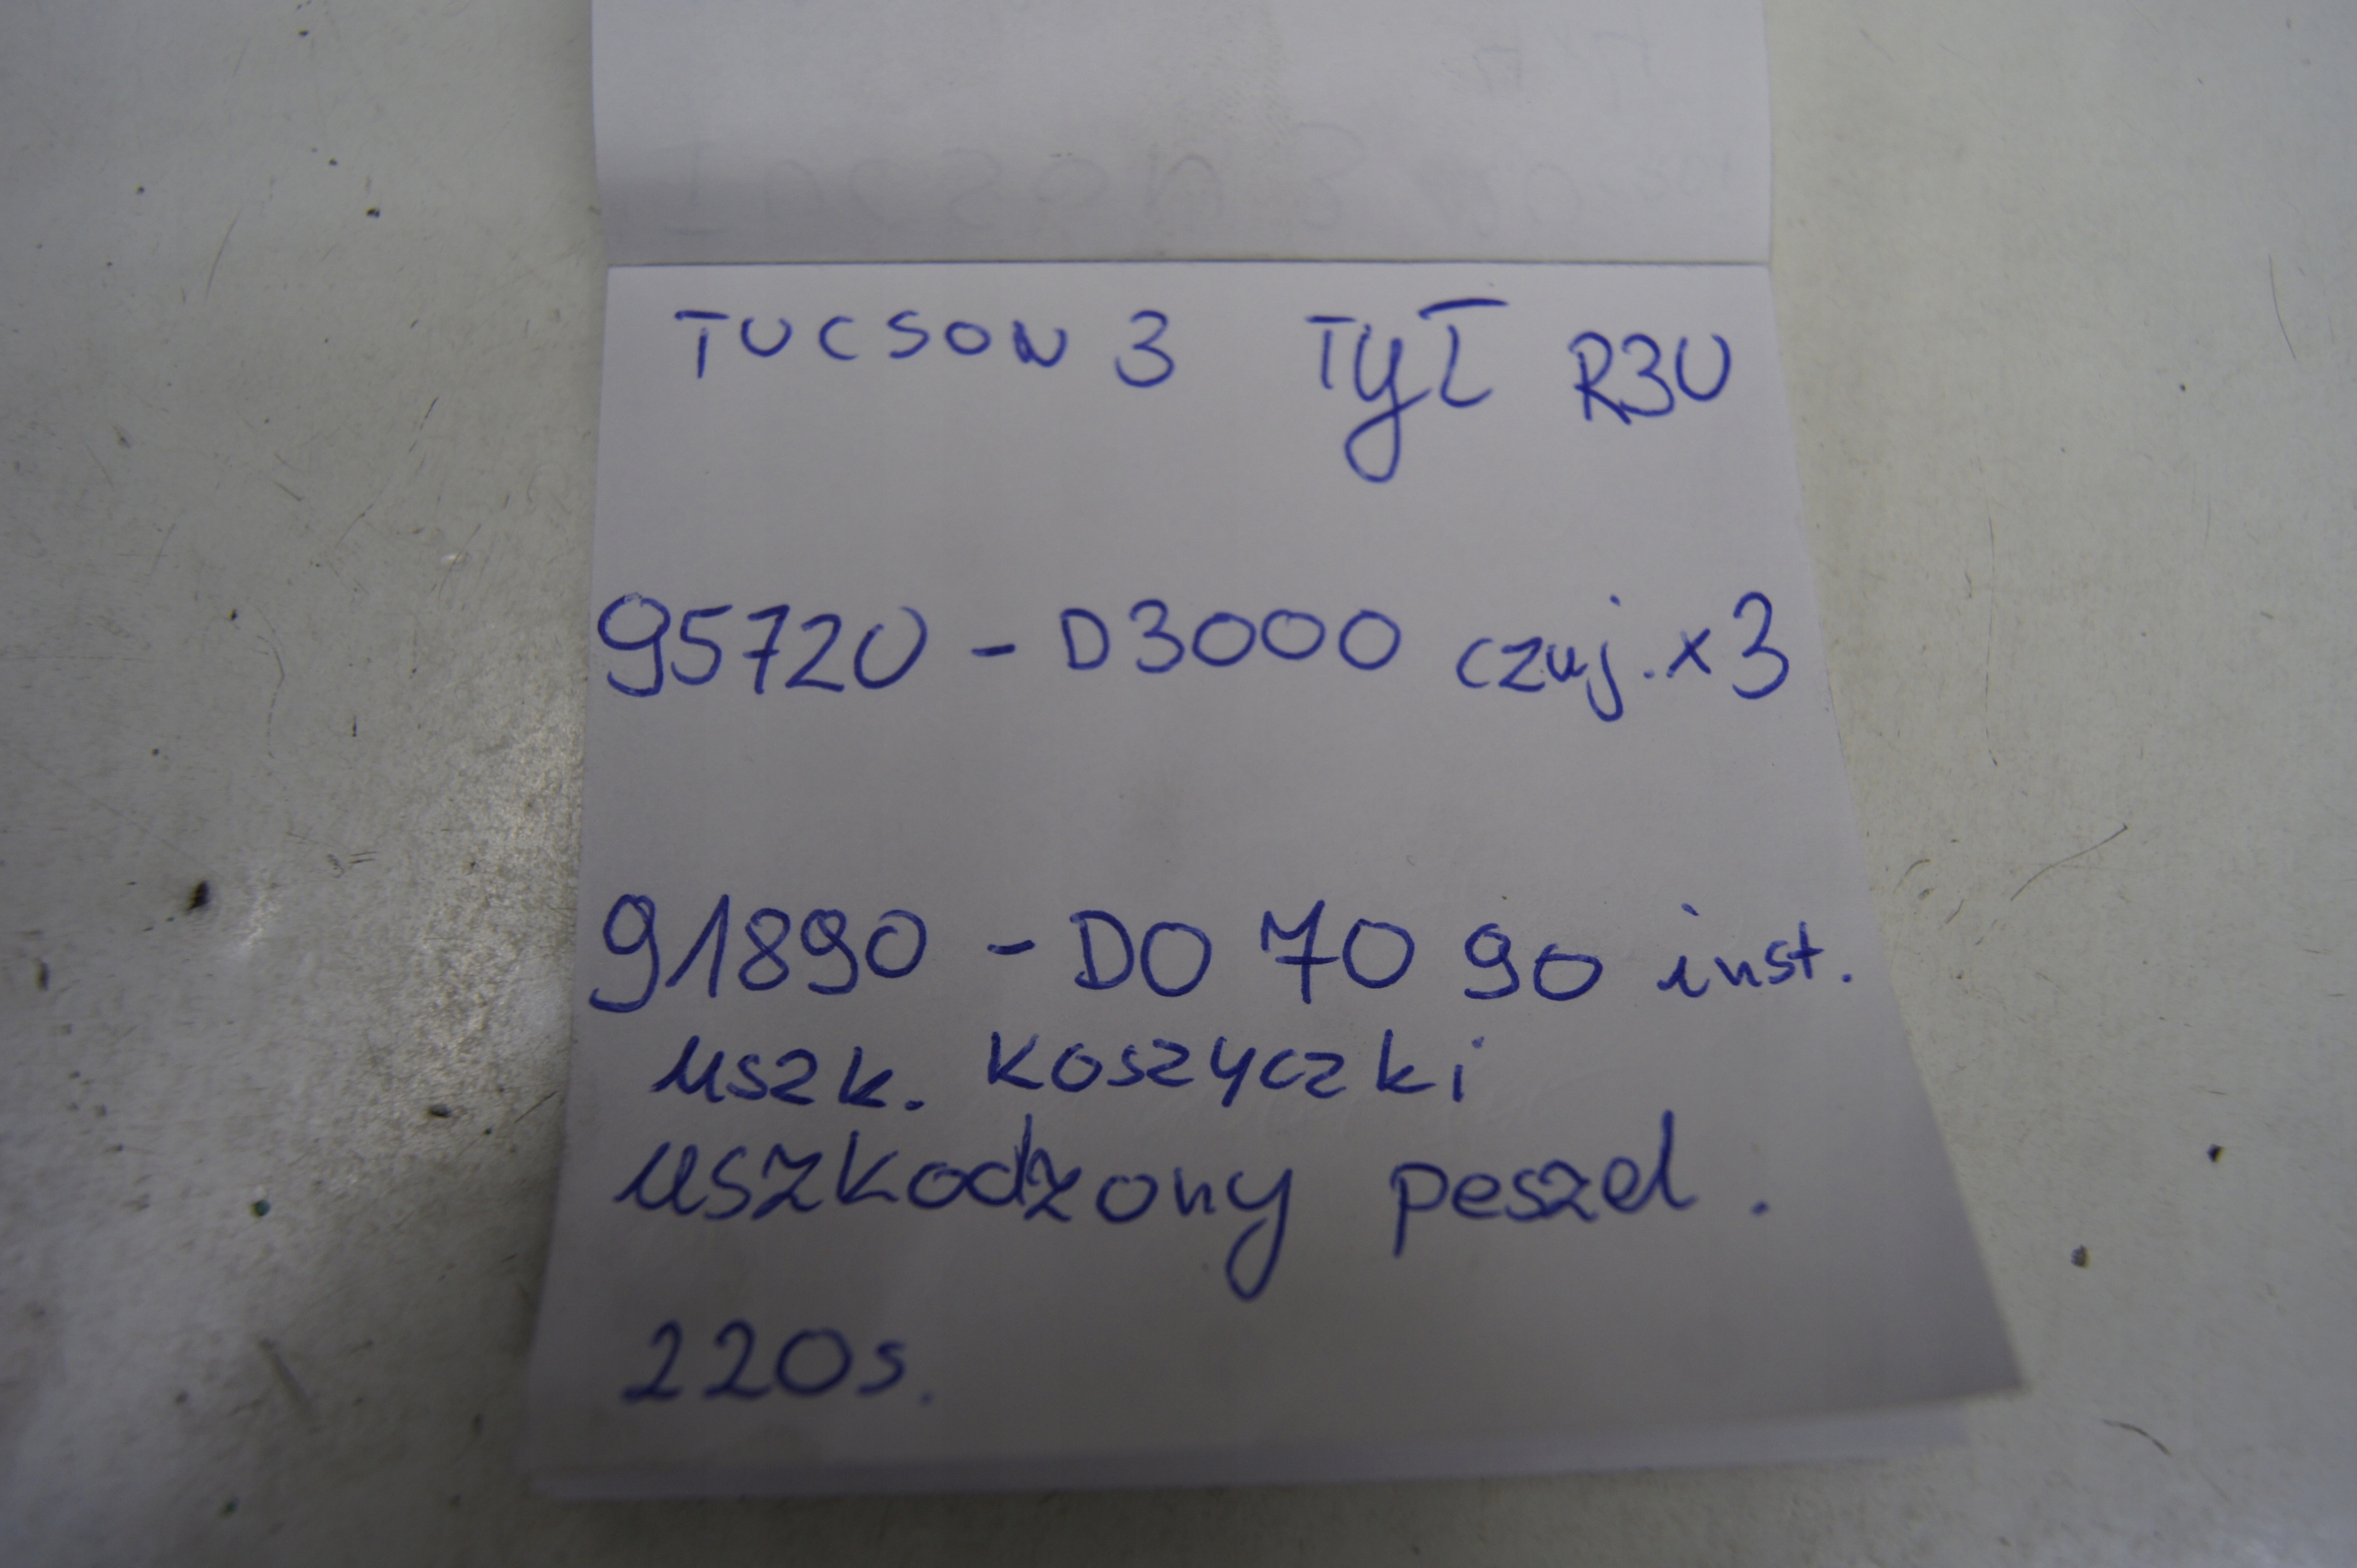 TUCSON 3 TYŁ R3U
95720 - D3000 czuj. x3
91890 - D0 70 90 inst.
uszk. koszyczki
uszkodzony peszel.
220s.